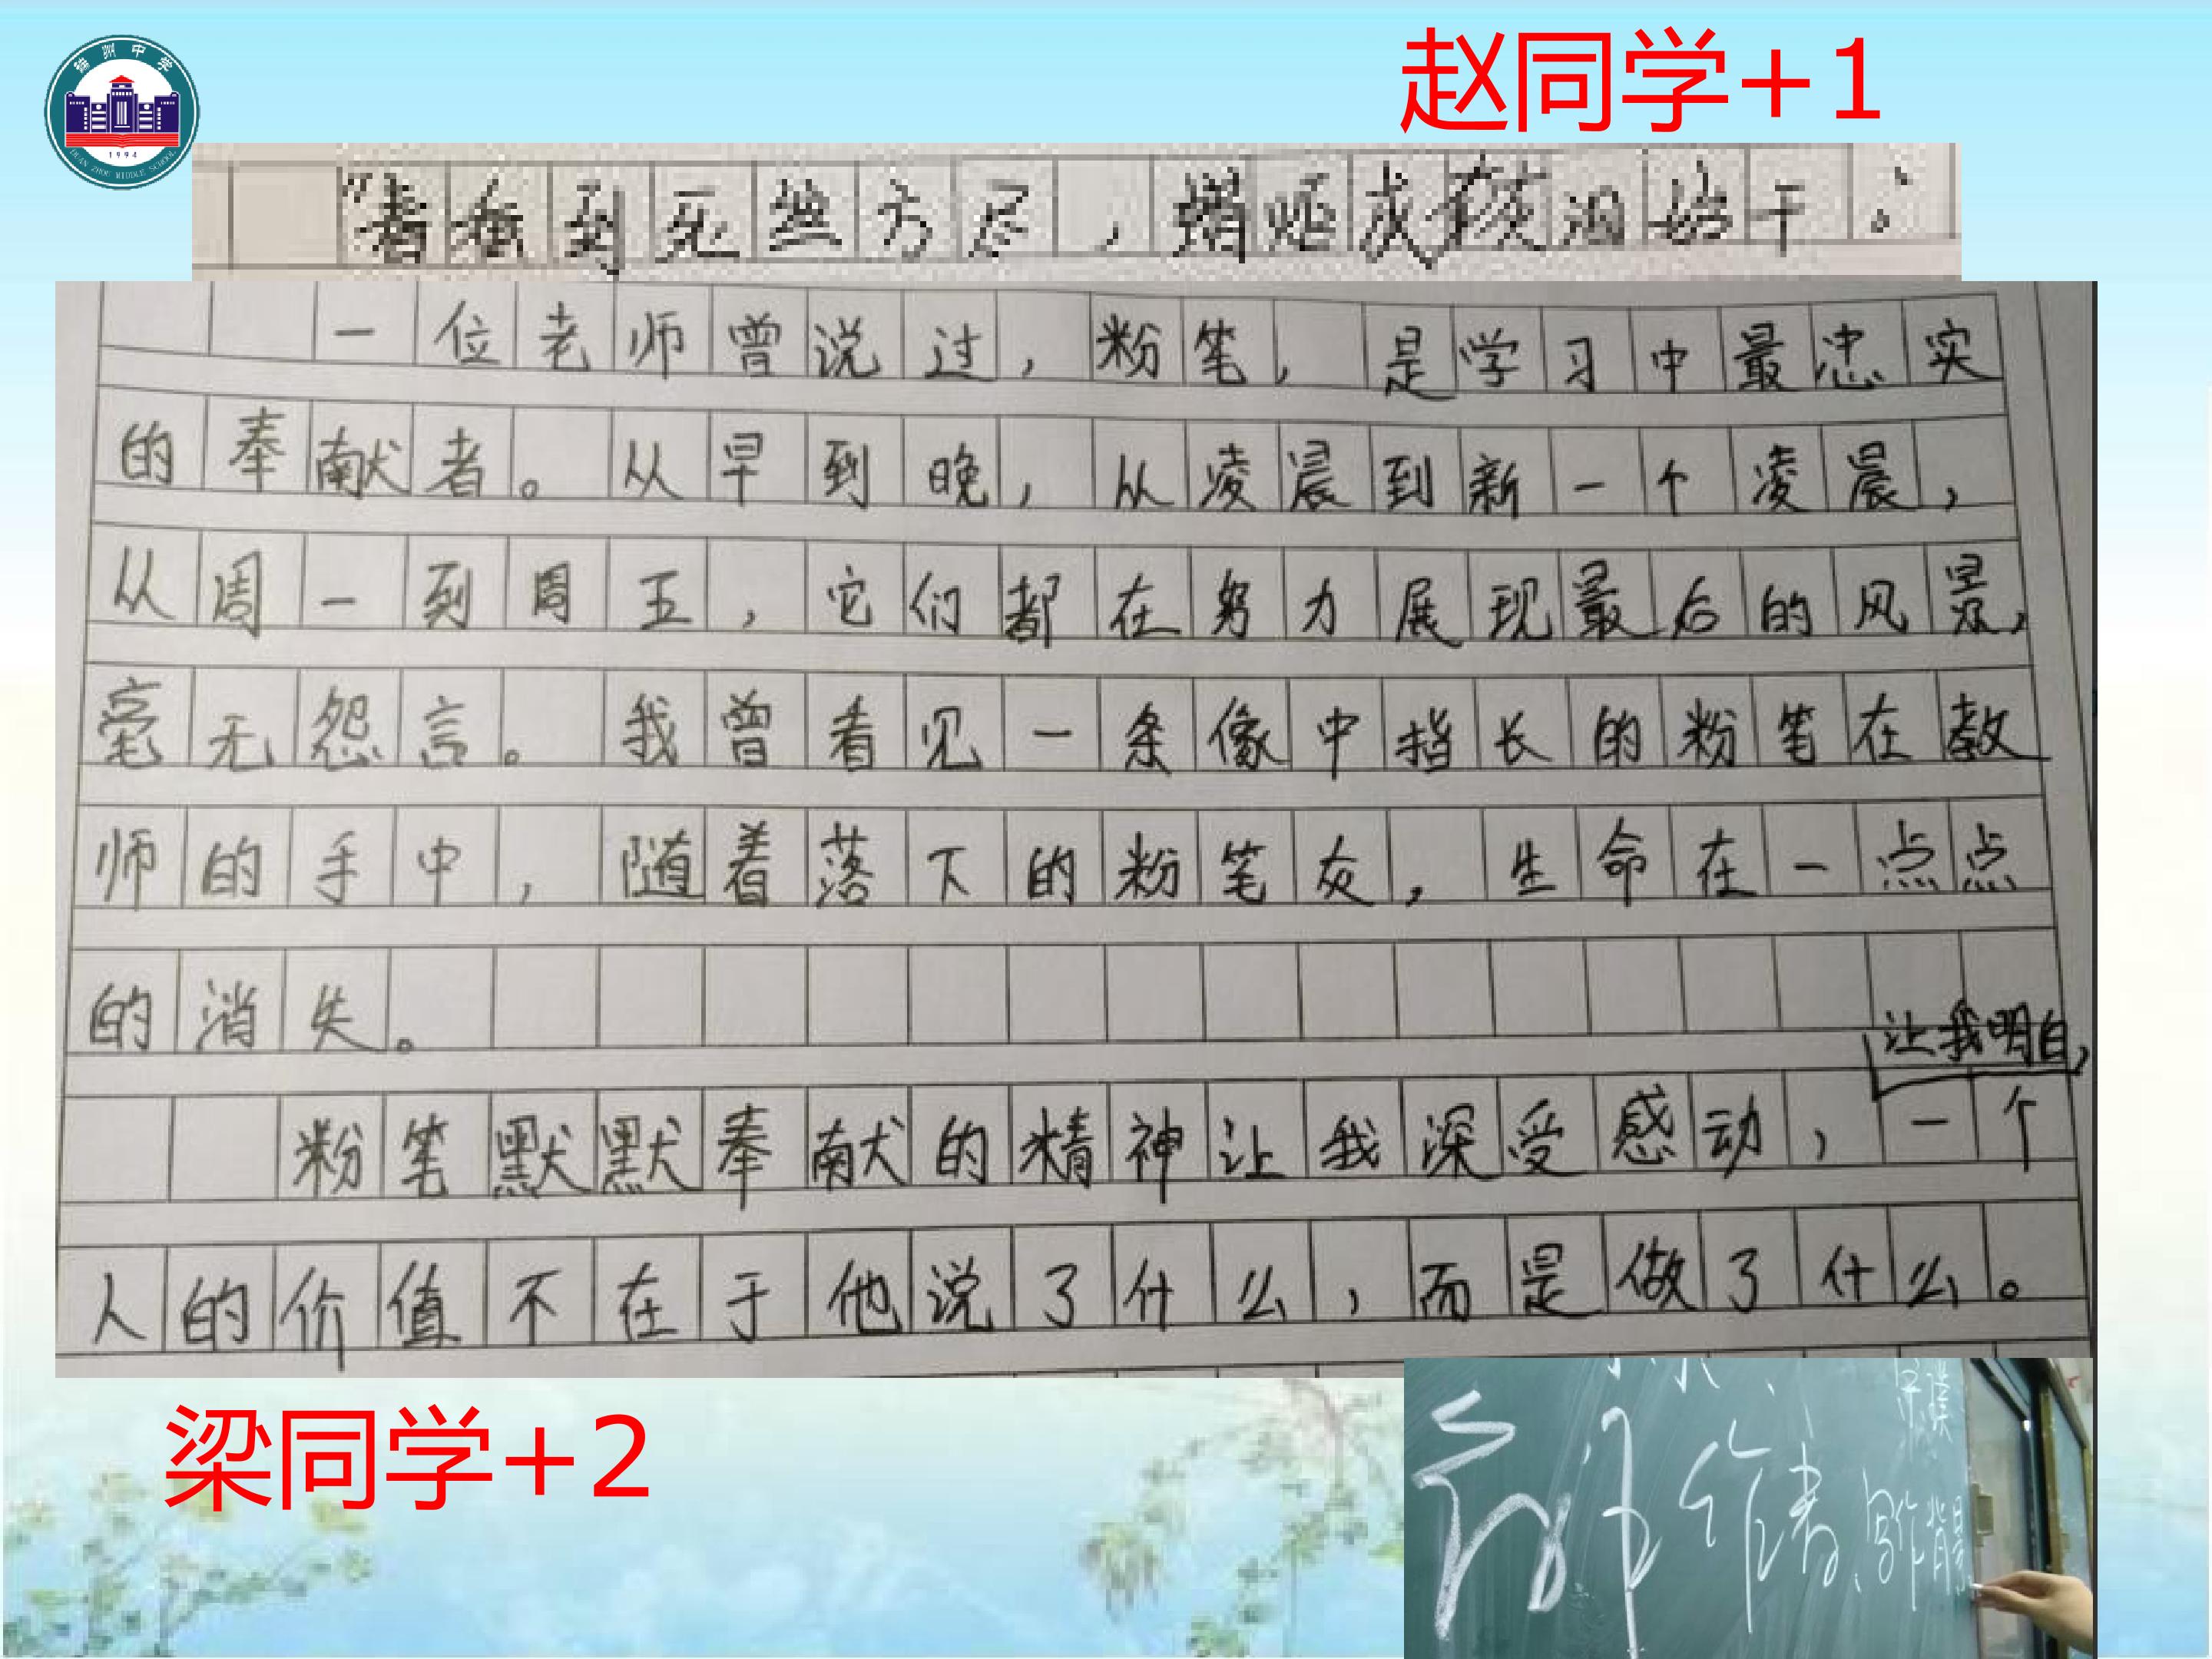 赵同学+1
端州中学
1994
DUAN ZHOU MIDDLE SCHOOL
"春蚕到死丝方尽，蜡炬成灰泪始干。"
一位老师曾说过，粉笔，是学习中最忠实
的奉献者。从早到晚，从凌晨到新一个凌晨，
从周一到周五，它们都在努力展现最后的风景，
毫无怨言。我曾看见一条像中指长的粉笔在教
师的手中，随着落下的粉笔灰，生命在一点点
的消失。
让我明白，
粉笔默默奉献的精神让我深受感动，一个
人的价值不在于他说了什么，而是做了什么。
梁同学+2
作者、写作背景